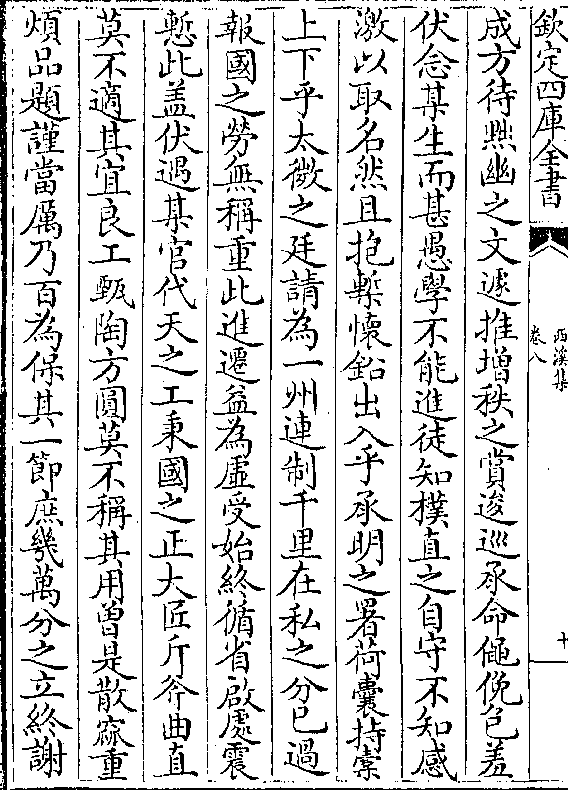 欽定四庫全書
西溪集
卷八
十
成方待黙幽之文遽推增秩之賞逡巡承命僶俛包羞
伏念某生而甚愚學不能進徒知樸直之自守不知感
激以取名然且抱槧懷鉛出入乎承明之署荷囊持橐
上下乎太微之廷請為一州連制千里在私之分已過
報國之勞無稱重此進遷益為虚受始終循省啟處震
慙此盖伏遇某官代天之工秉國之正大匠斤斧曲直
莫不適其宜良工甄陶方圓莫不稱其用曽是散窳重
煩品題謹當厲乃百為保其一節庶幾萬分之立終謝